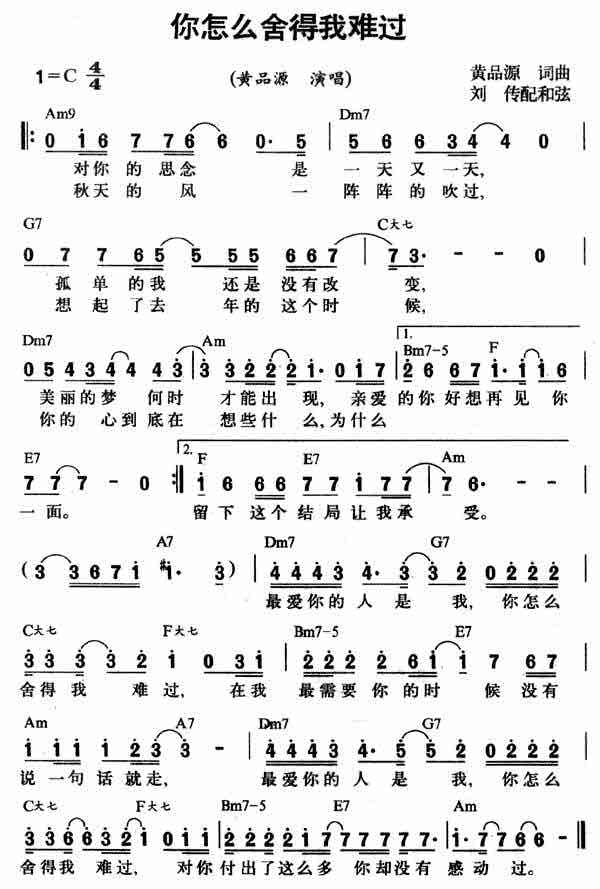 你怎么舍得我难过
1=C 4/4
(黄品源 演唱)
黄品源 词曲
刘 传配和弦
Am9 Dm7
0 1 6 7 7 6 6 0· 5 5 6 6 3 4 4 0
对你的思念 是一天又一天,
秋天的风 一阵阵的吹过,
G7 C大七
0 7 7 6 5 5 5 5 6 6 7 7 3· - - 0
孤单的我 还是没有改变,
想起了去年的这个时候,
Dm7 Am 1. Bm7-5 F
0 5 4 3 4 4 4 3 3 3 2 2 2 1· 0 1 7 2 6 6 7 1· 1 1 6
美丽的梦何时 才能出现,亲爱的你好想再见你
你的心到底在想些什么,为什么
E7 2. F E7 Am
7 7 7 - 0 1 6 6 6 7 7 1 7 7 7 6· - -
一面。 留下这个结局让我承受。
A7 Dm7 G7
(3 3 3 6 7 1 1· 3) 4 4 4 3 4· 3 3 2 0 2 2 2
最爱你的人是我,你怎么
C大七 F大七 Bm7-5 E7
3 3 3 3 2 1 0 3 1 2 2 2 2 6 1 1 7 6 7
舍得我难过,在我最需要你的时候没有
Am A7 Dm7 G7
1 1 1 1 2 3 3 4 4 4 3 4· 5 5 2 0 2 2 2
说一句话就走, 最爱你的人是我,你怎么
C大七 F大七 Bm7-5 E7 Am
3 3 6 6 3 2 1 0 1 1 2 2 2 2 1 7 7 7 7 7 7 1· 1 7 7 6 6 -
舍得我难过, 对你付出了这么多你却没有感动过。